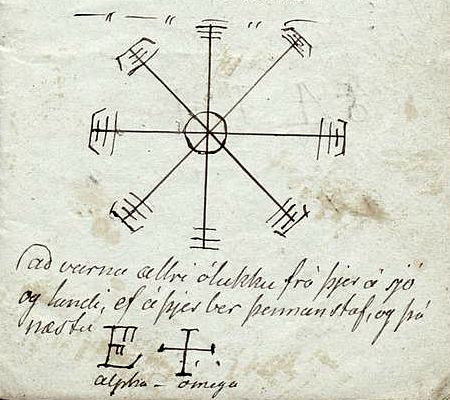 að varna allri ólukku frá þjer á sjó
og landi, ef á þjer ber þennan staf, og þá
næstu
alpha – ómega